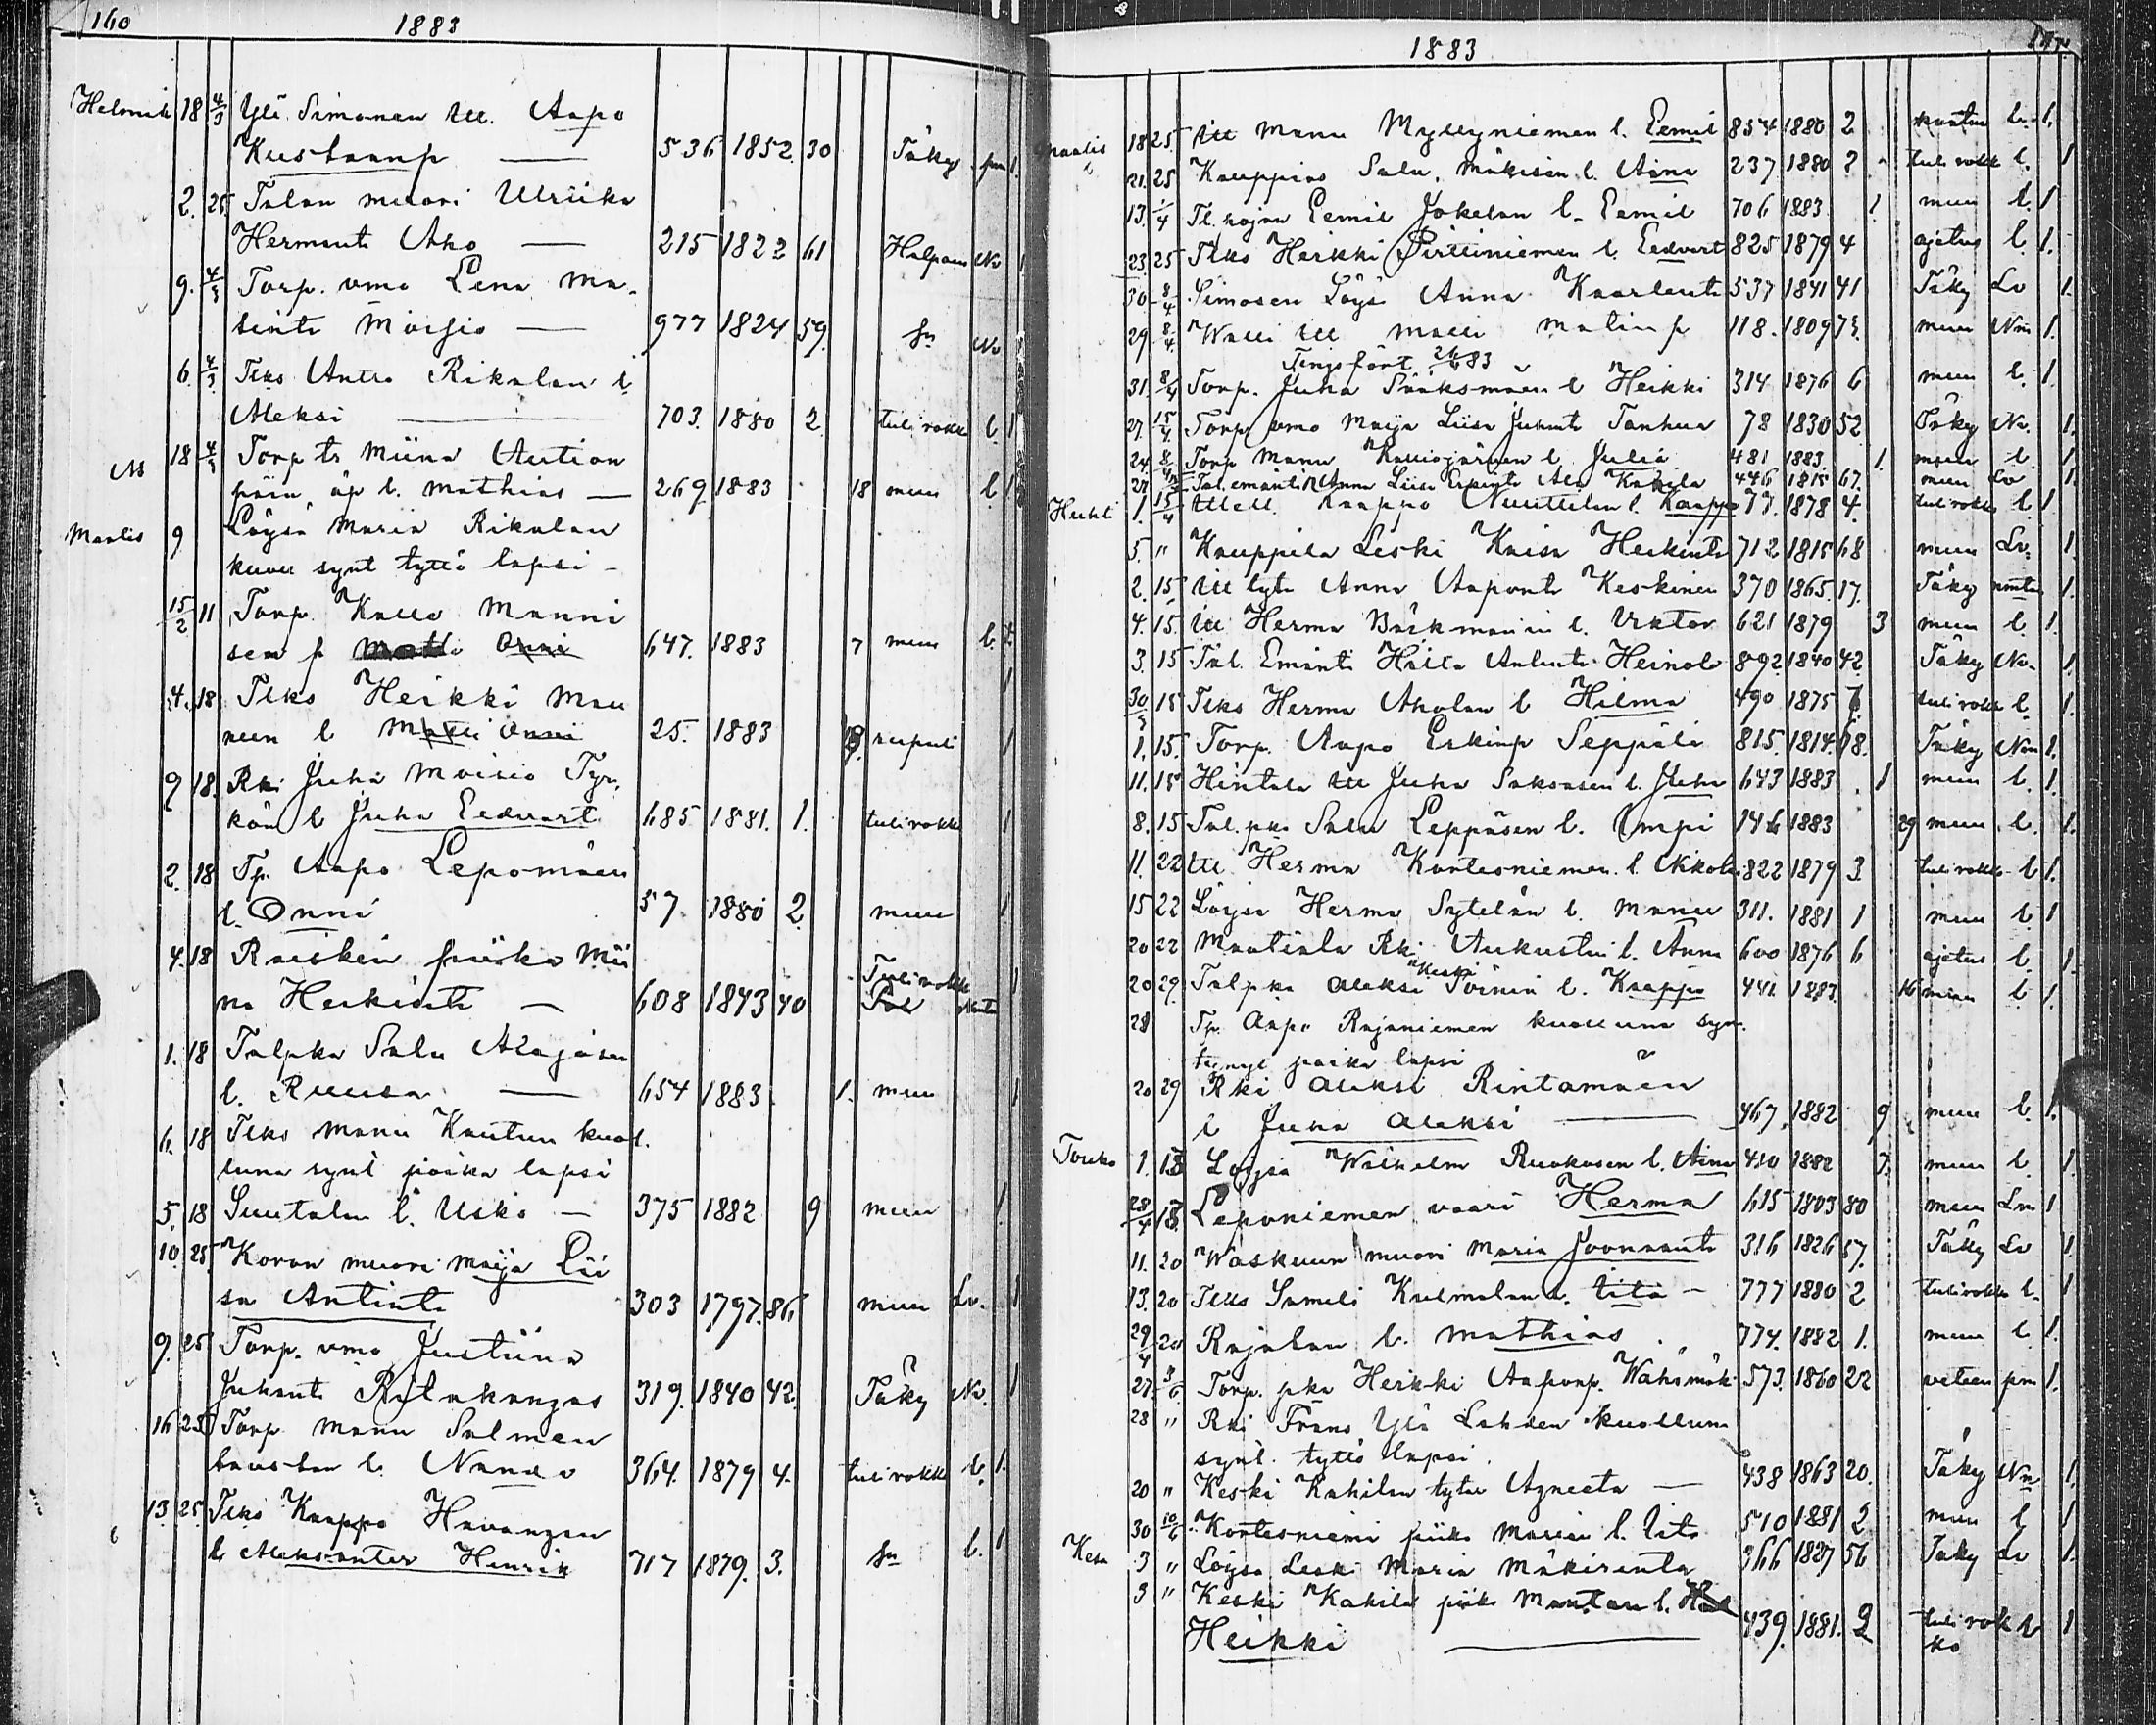 160
1883
Helmik 18 4/3 Yli Simonen Itt. Aapo
Kustaanp — 536 1852. 30 Täky pm 1.
2. 25. Talan muori Ulriika
Hermanti Aho — 215 1822 61 Halpaus Nv 1
9. 4/3 Torp. vmo Lena Ma-
tints Moisio — 977 1824 59. Sn Nv
6. 4/3 Tlks Antto Rikalan l.
Aleksi — 703. 1880 2. tuli rokko l. 1
18 4/3 Torp tr Miina Aution
pään, äp l. Mathias — 269 1883 18 muu l. 1
Maalis 9 Löysä Maria Rikalan
kuoll synt tyttö lapsi -
15/2 11 Torp. Kalle Manni
sen p Onni 647. 1883 7 muu l.
4. 18 Tlks Heikki Man
nen l Matti Onni 25. 1883 rupuli 1
9 18. Rki Juha Moisio Tyr.
kön l Juha Eedvart 685 1881. 1. tuli rokko 1
2. 18 Tp. Aapo Lepomäen
l. Onni 57. 1880 2. muu 1
4. 18 Rauskin piika Mii
na Heikinti — 608 1843 40 Tuli rokko 1
1. 18 Talpka Salu Alajäsen
l. Ruusa — 654 1883. 1. muu 1
6. 18 Tlks Manu Kautun kuol.
luna synt poika lapsi
5. 18 Suutalan l. Usko — 375 1882 9 muu 1.
10. 25. Koron muori Maija Lii
sa Antinti 303 1797. 86 muu Lv. 1
9. 25 Torp. vmo Justiina
Juhanti Riilakangas 319. 1840 42. Täky Nv. 1
16 25 Torp Manu Salmen
taustan l. Nanno 364. 1879 4. tuli rokko l. 1.
13. 25. Tlks Kaappo Havangan
l. Aleksanter Henrik 717 1879. 3. Sn l. 1
1883
Maalis 18 25. Itt Manu Myllyniemen l. Eemil 854 1880 2 l. 1.
21. 25 Kauppias Salu. Mäkisen l. Aina 237 1880 2 tuli rokk l. 1
13. 1/4 Tl. rojan Eemil Jokelan l. Eemil 706 1883 1. muu l. 1
23 25 Tlks Heikki Pirttiniemen l. Eedvart 825 1879 4 ajetus l. 1.
30 8/4 Simosen Löysä Anna Kaarlenti 537 1841 41 Täky Lv 1.
29 8/4. Walli Itt Matti Matinp 118. 1809 73. muu Nm 1.
31 8/4 Torp. Juha Sääksmäen l Heikki 314 1876 6 muu l. 1.
27. 15/4. Torp vmo Maija Liisa Juhanti Tanhua 78 1830 52 Täky Nv. 1.
24 8/4 Torp Manu Kalliojärven l Julia 481 1883 1. muu l. 1
27. Tal. emänti Anna Liisa Erkinti Ala Kahila 446 1815 67. muu Lv 1.
Huhti 1. 15/4 Kaappo Nuuttilan l. Kaappo 77. 1878 4. tuli rokko l 1
5. " Kauppila Leski Kaisa Heikinti 712 1815 68 muu Lv. 1.
2. 15. Itt tyt Anna Aaponti Keskinen 370 1865. 17. Täky 1.
4. 15. Itt Herma Bäckmanin l. Viktor 621 1879 3 muu l. 1.
3. 15 Tal. Emänti Heinola 892. 1840 42 Täky Nv. 1.
30/3 15 Tlks Herma Aholan l Hilma 490 1875 tuli rokko l. 1.
1. 15. Torp. Aapo Erkinp Seppälä 815. 1814. Täky Nm 1.
11. 15 Hintala Itt Juha Saksasen l. Juha 643 1883 1 muu l. 1.
8. 15 Tal. pka Salu Leppäsen l. Impi 146 1883 29 muu l. 1.
11. 22 Itt Herma Kortesniemen. l. Nikola 822 1879 3. tuli rokko l 1.
15 22 Löysä Herma Sytelän l. Manu 311. 1881 1 muu l 1
20 22 Mantiala Rki. Aukustin l. Anna 600 1876 6 ajetus l. 1.
20 29. Talpka Aleksi Keski Töinin l. Kaappo 441. 1883. 16 muu l 1.
28 Tp. Aapo Rajaniemen kuolluna syn-
tynyt poika lapsi
20 29 Rki Aleksi Rintamäen
l Juha Aleksi — 467. 1882 9 muu l. 1.
Touko 1. 13 Löysä Wilhelm Ruokosen l. Aina 410 1882 7. muu l. 1.
28/4 13 Leponiemen vaari Herma 615 1803 80 muu Lm 1
11. 20 Waskuun muori Maria Joonaanti 316 1826 57. Täky Lv 1.
13. 20 Tlks Sameli Kulmalan l. Iita — 777 1880 2 tuli rokko l. 1
29/4 20 Rajalan l. Mathias 774. 1882 1. muu l. 1.
27. 3/6. Torp. pka Heikki Aaponp. Wähämäk 573. 1860 22 veteen pm 1.
28 " Rki Frans Ylä Lahden kuolluna
synt. tyttö lapsi.
20 " Keski Kahilan tytar Agneeta — 438 1863 20. Täky Nm 1.
30 10/6 Kortesniemi piika Marian l. Iita 510 1881 2 muu l 1
Kesä 3 " Löysä Leski Maria Mäkirinta 366 1827 56 Täky Lv 1.
3 " Keski Kahila piik Mantan l.
Heikki — 439. 1881. 2 tuli rok l 1
ko